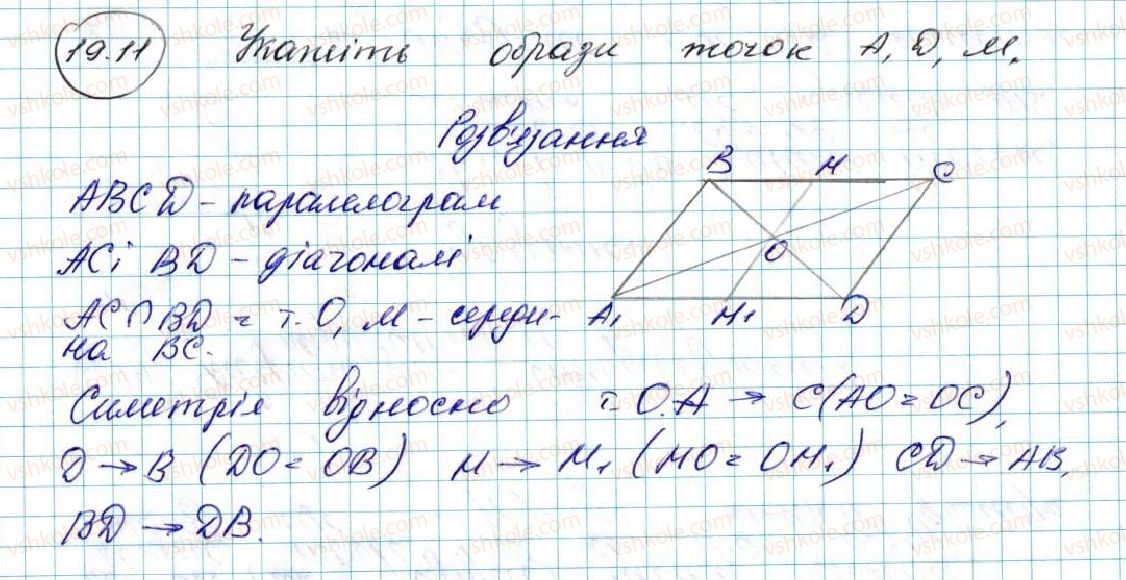 19.11 Укажіть образи точок A, D, M.
Розв'язання
ABCD - паралелограм
AC і BD - діагоналі
AC∩BD = т. O, M - середи-
на BC.
B M C
O
A, M₁ D
Симетрія відносно т. O. A → C (AO = OC),
D → B (DO = OB) M → M₁ (MO = OM₁) CD → AB,
BD → DB.
vshkole.com